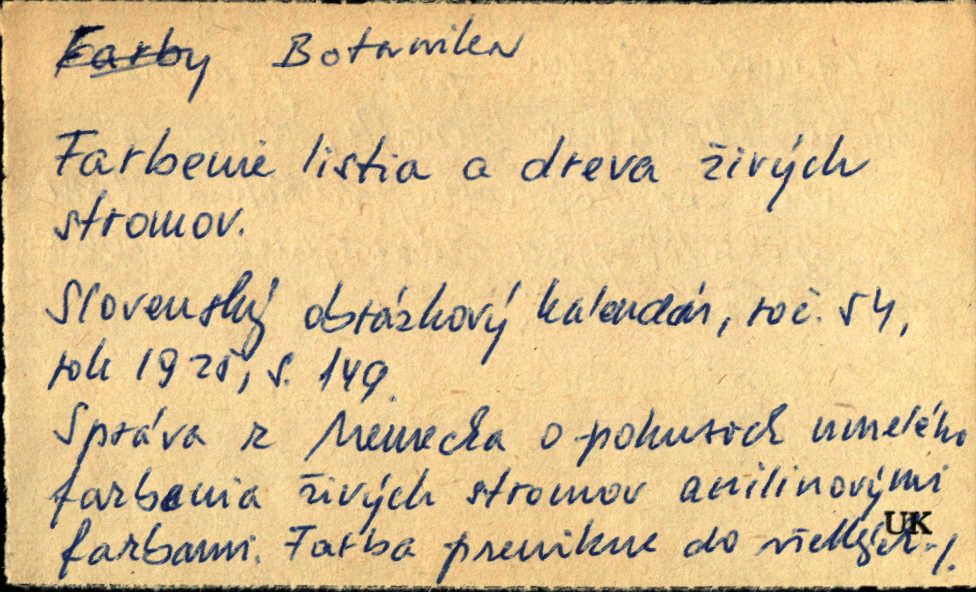 Farby Botanika
Farbenie lístia a dreva živých
stromov.
Slovenský obrázkový kalendár, roč. 54,
rok 1925, s. 149.
Správa z Nemecka o pokusoch umelého
farbenia živých stromov anilinovými
farbami. Farba prenikne do všetkých -/.
UK